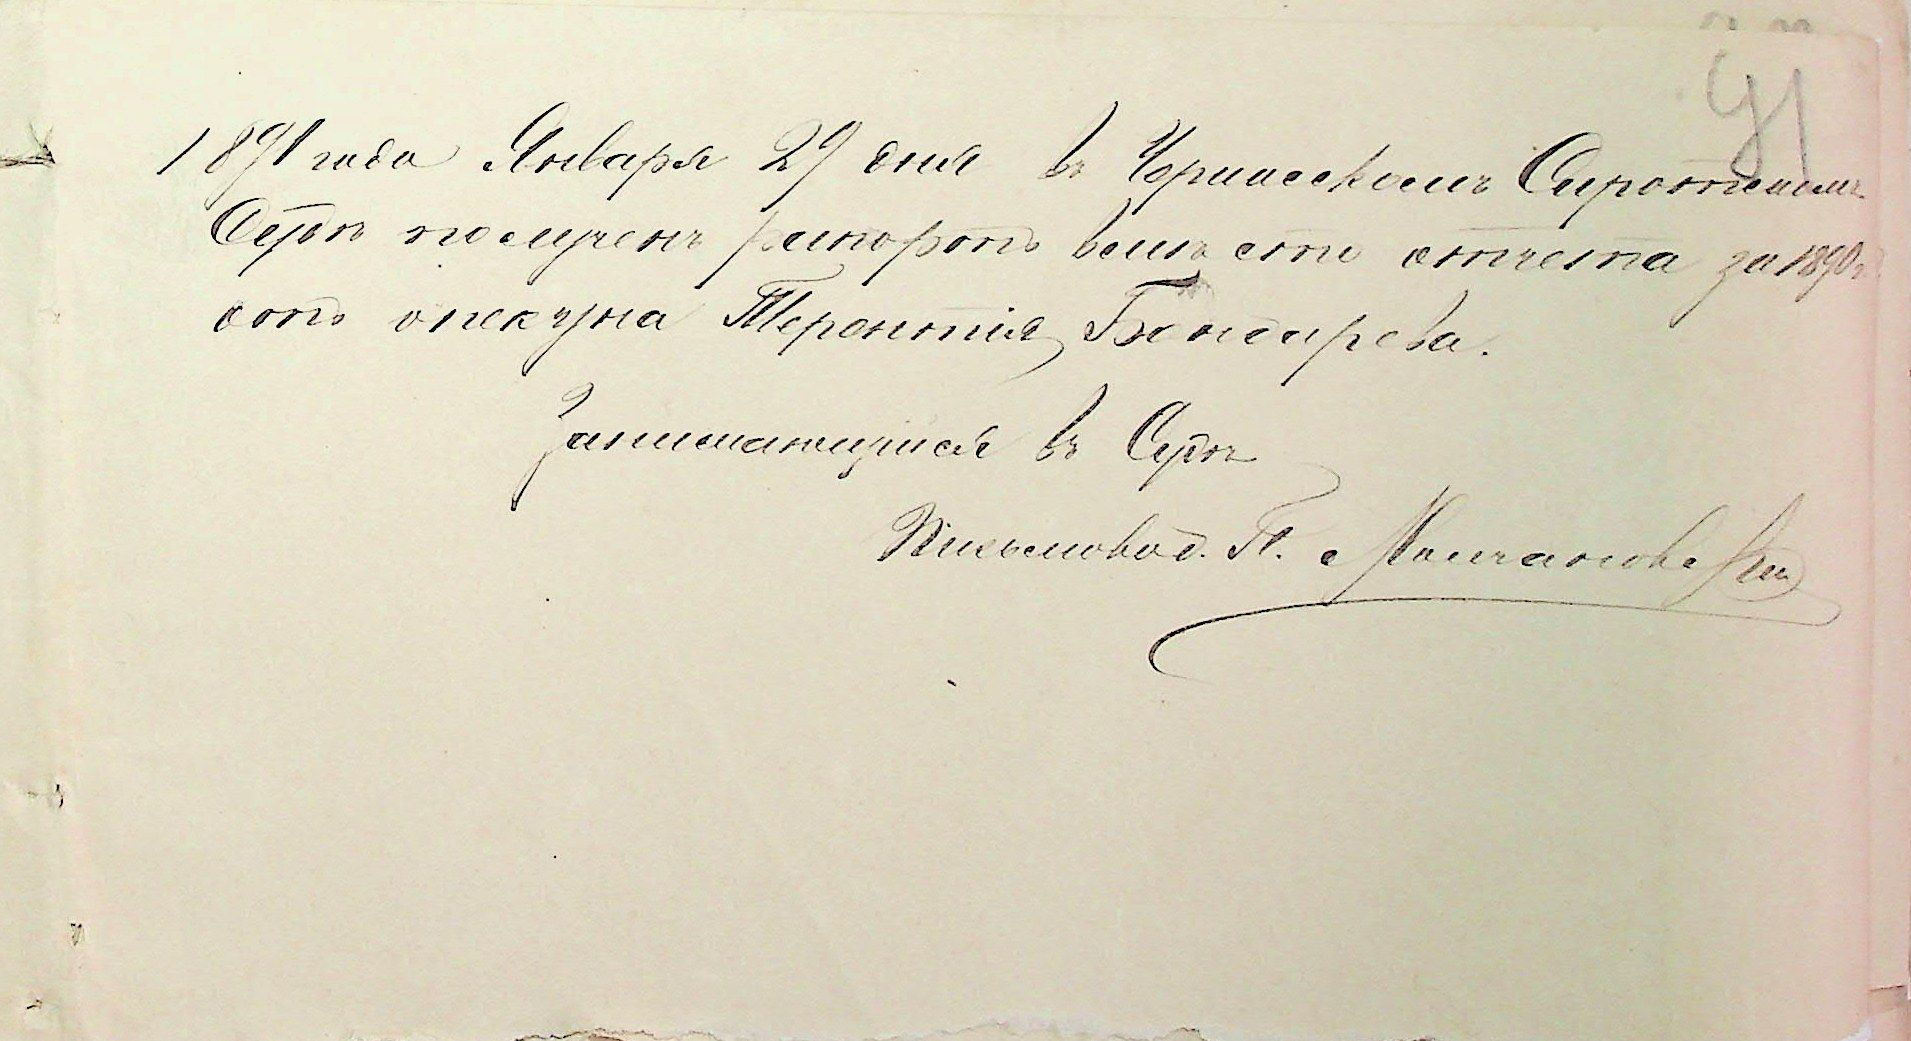 91
1891 года Января 29 дня въ Черкасскомъ Сиротскомъ
Судѣ полученъ рапортъ вмѣсто отчета за 1890 г.
отъ опекуна Терентія Бондарева.
Занимающійся въ Судѣ
Письмовод. П. Молчановскій